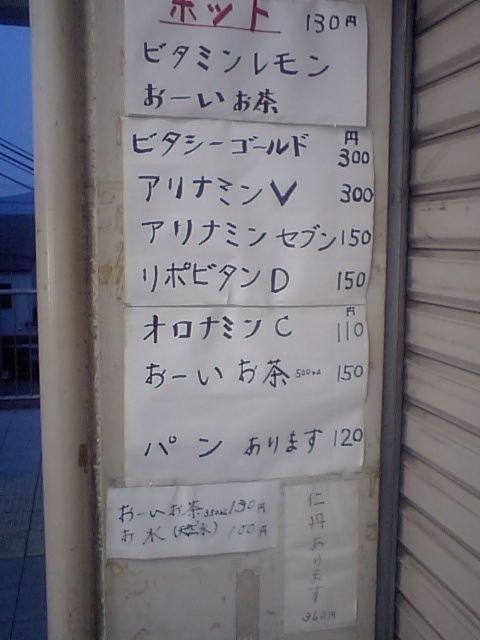 ホット 130円
ビタミンレモン
おーいお茶
ビタシーゴールド 円300
アリナミンV 300
アリナミンセブン 150
リポビタンD 150
オロナミンC 円110
おーいお茶 500ml 150
パン あります 120
おーいお茶 350ml 130円
お水(天然水) 100円
仁丹あります 360円